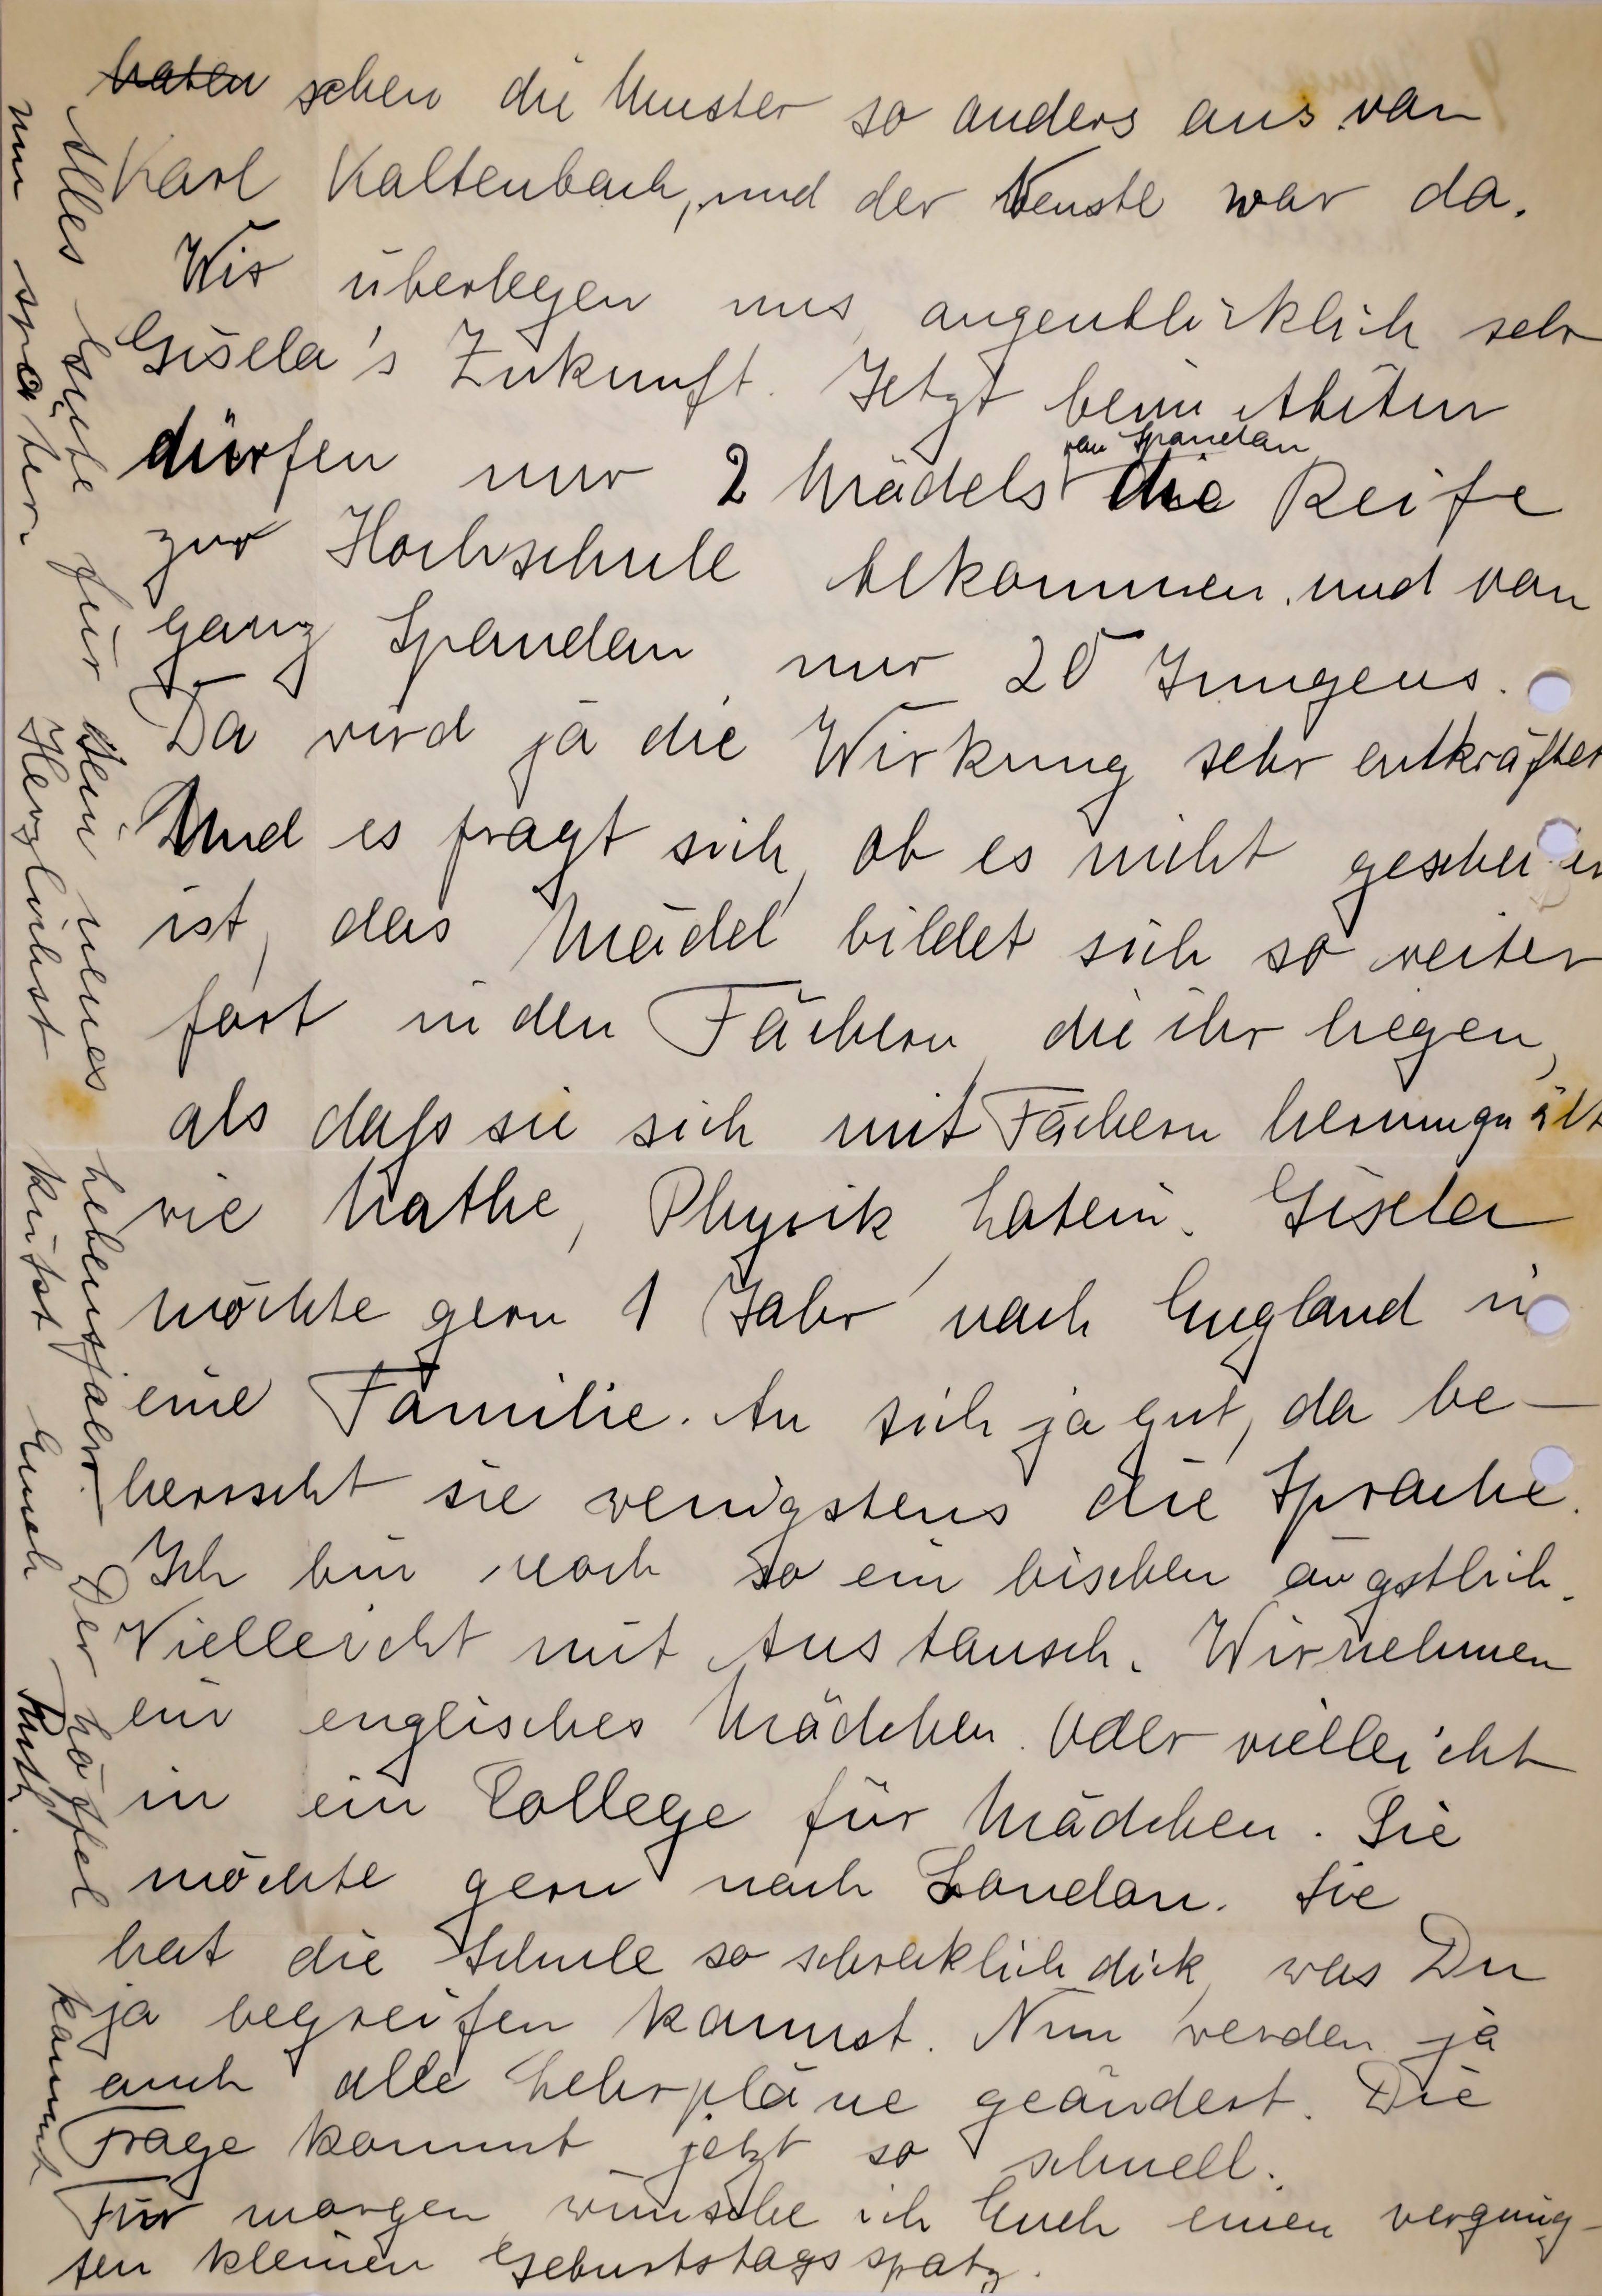 haben sehen die Muster so anders aus von
Karl Kaltenbach, und der Kenste war da.
Wir überlegen uns augenblicklich sehr
Gisela's Zukunft. Jetzt beim Abitur
von Spandau
dürfen nur 2 Mädels die Reife
zur Hochschule bekommen und von
ganz Spandau nur 20 Jungens.
Da wird ja die Wirkung sehr entkräftet
Und es fragt sich, ob es nicht
ist, das Mädel bildet sich so weiter
fort in den Fächern, die ihr liegen,
als daß sie sich mit Fächern herumquält
wie Mathe, Physik, Latein. Gisela
möchte gern 1 Jahr nach England in
eine Familie. An sich ja gut, da be-
herrscht sie wenigstens die Sprache.
Ich bin noch so ein bischen ängstlich.
Vielleicht mit Austausch. Wir nehmen
ein englisches Mädchen. Oder vielleicht
in ein College für Mädchen. Sie
möchte gern nach London. Sie
hat die Schule so schrecklich dick, was Du
ja begreifen kannst. Nun werden ja
auch alle Lehrpläne geändert. Die
Frage kommt jetzt so schnell.
Für morgen wünsche ich Euch einen vergnüg-
ten kleinen Geburtstagsspatz.
Alles Gute für Dein neues Lebensjahr. Der Löffel kommt
nur später. Herzlichst küßt Euch Ruth.